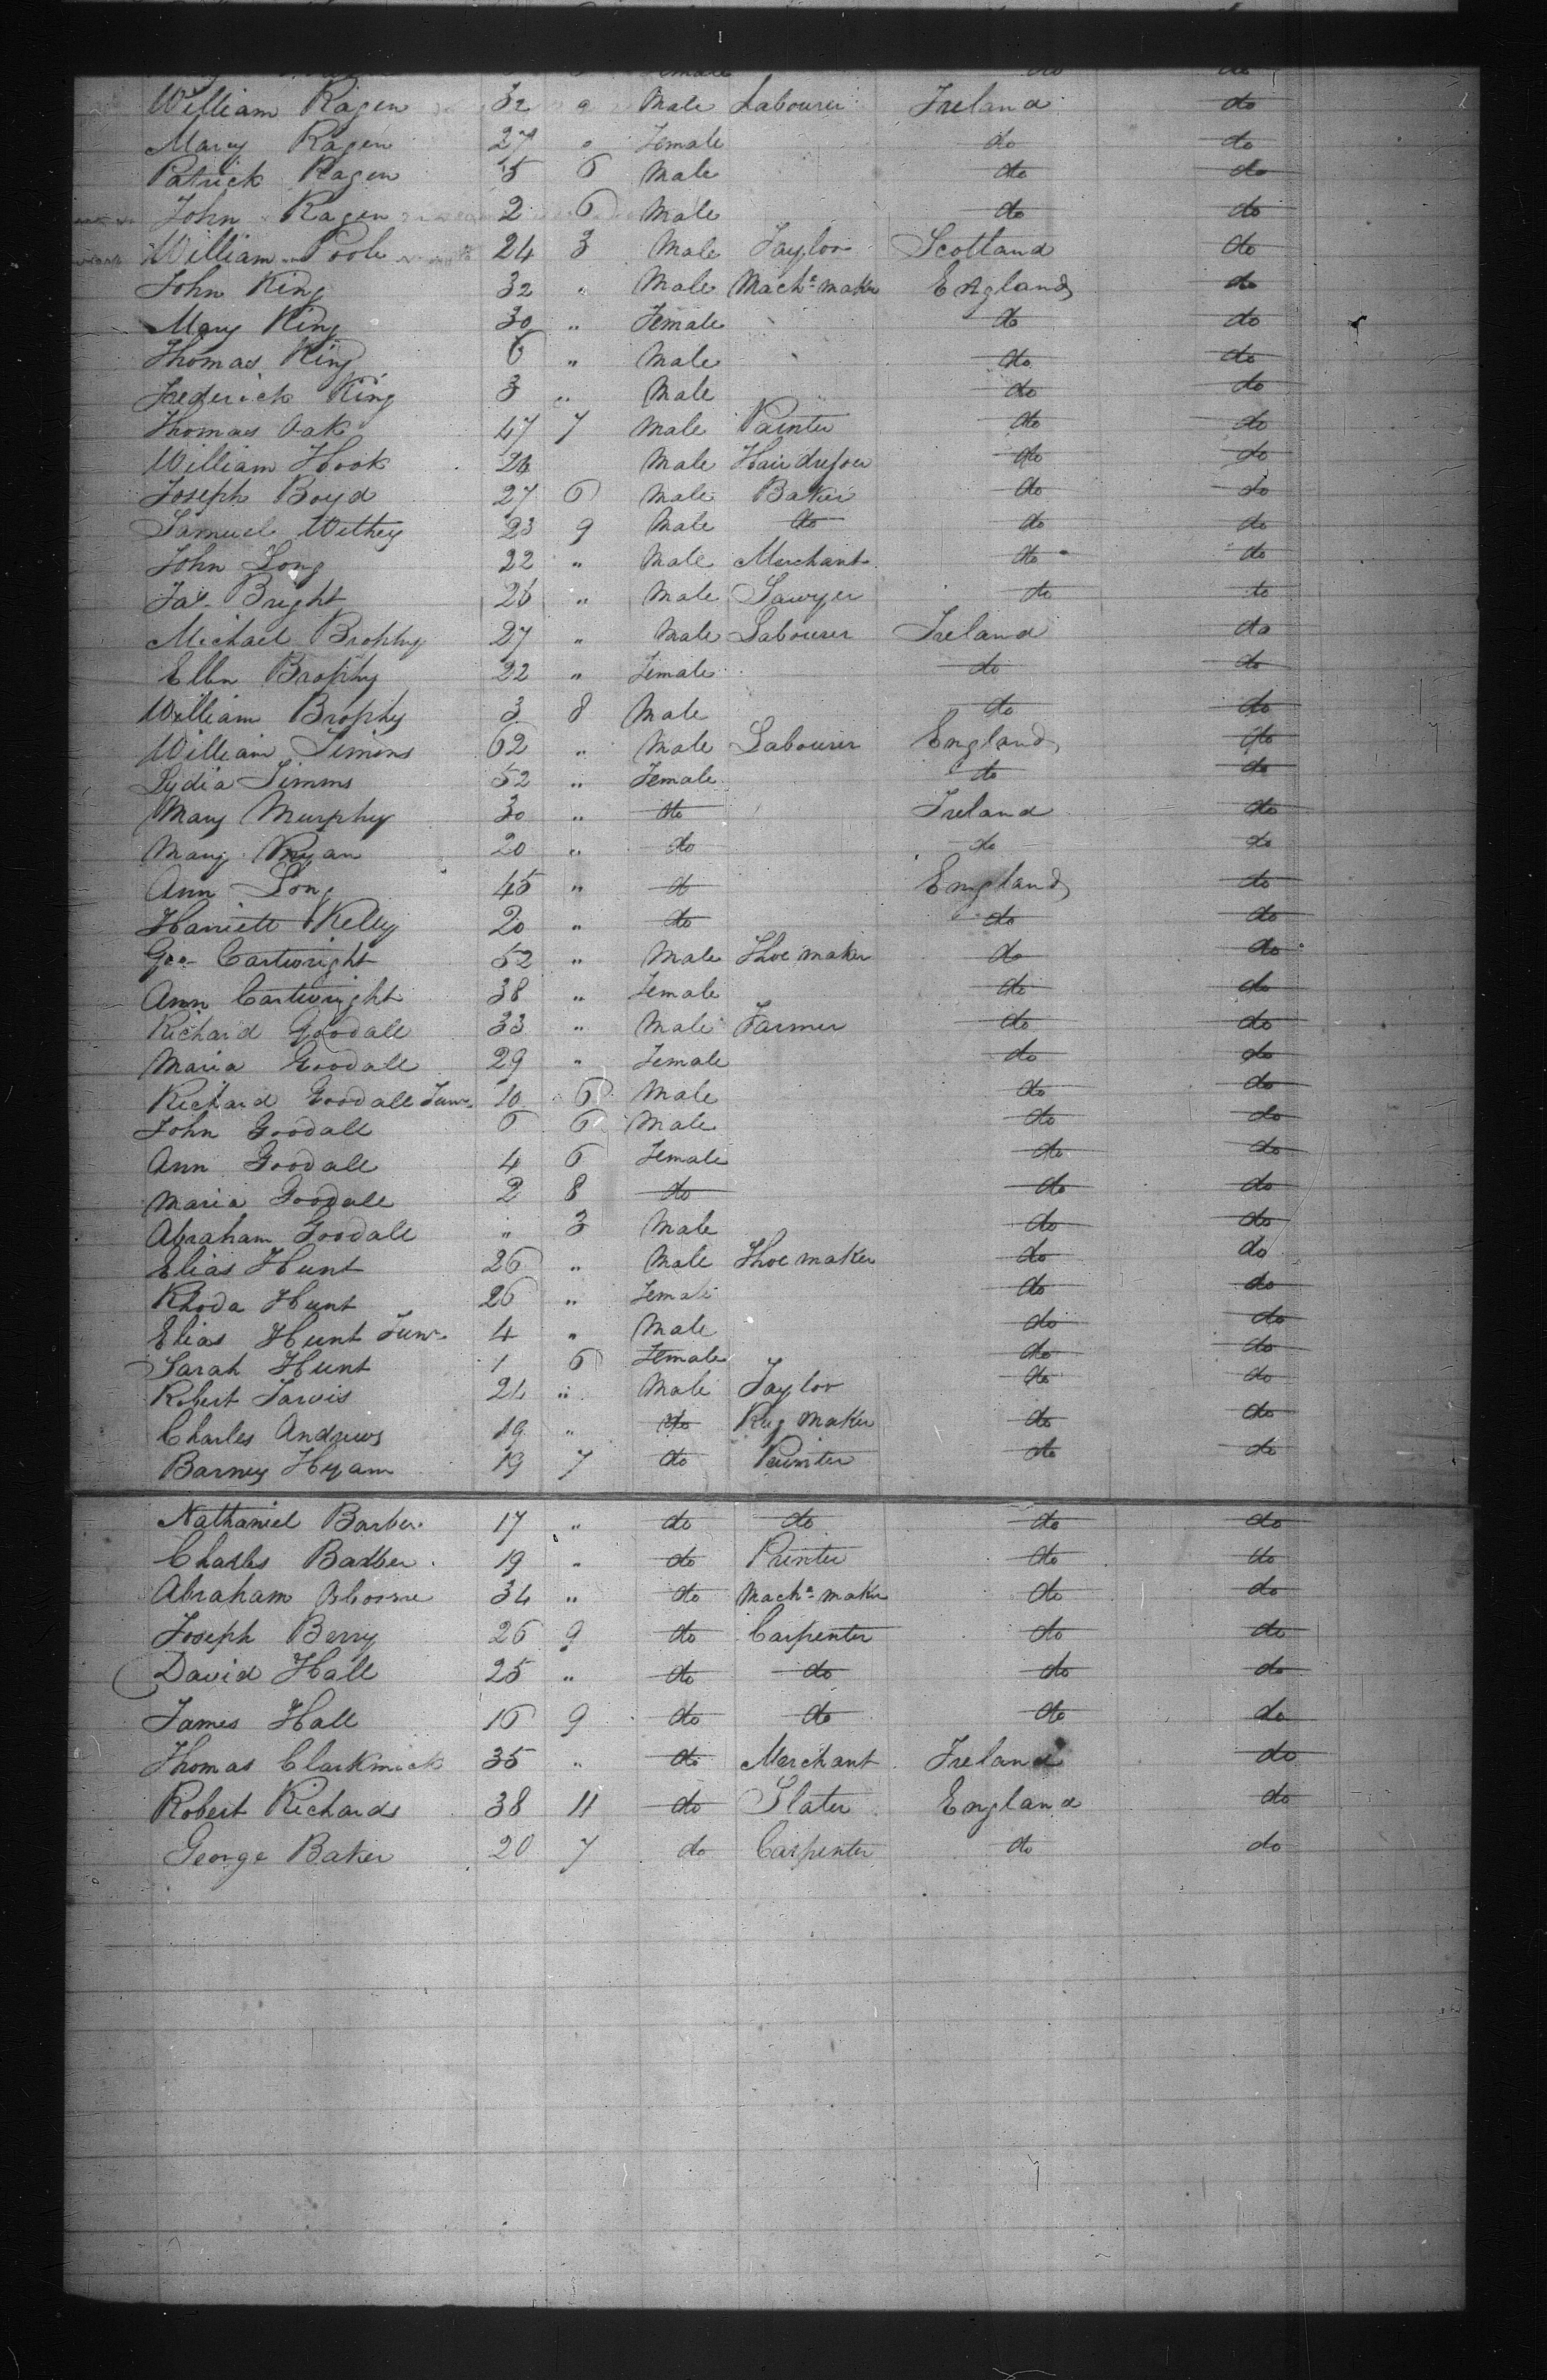 Female do do
William Ragen 32 " Male Labourer Ireland do
Mary Ragen 27 " Female do do
Patrick Ragen 5 6 Male do do
John Ragen 2 6 Male do do
William Poole 24 3 Male Taylor Scotland do
John King 32 " Male Mach.e maker England do
Mary King 30 " Female do do
Thomas King 6 " Male do do
Frederick King 3 " Male do do
Thomas Oak 47 7 Male Painter do do
William Hook 24 Male Hairdresser do do
Joseph Boyd 27 6 Male Baker do do
Samuel Withey 23 9 Male do do do
John Long 22 " Male Merchant do do
Jas. Bright 26 " Male Sawyer do do
Michael Brophy 27 " Male Labourer Ireland do
Ellen Brophy 22 " Female do do
William Brophy 3 8 Male do do
William Simms 62 " Male Labourer England do
Lydia Simms 52 " Female do do
Mary Murphy 30 " do Ireland do
Mary Ryan 20 " do do do
Ann Long 45 " do England do
Harriett Kelly 20 " do do do
Geo Cartwright 52 " Male Shoe maker do do
Ann Cartwright 38 " Female do do
Richard Goodall 33 " Male Farmer do do
Maria Goodall 29 " Female do do
Richard Goodall Junr. 10 6 Male do do
John Goodall 6 6 Male do do
Ann Goodall 4 6 Female do do
Maria Goodall 2 8 do do do
Abraham Goodall " 3 Male do do
Elias Hunt 26 " Male Shoe maker do do
Rhoda Hunt 26 " Female do do
Elias Hunt Junr. 4 " Male do do
Sarah Hunt 1 6 Female do do
Robert Jarvis 24 " Male Taylor do do
Charles Andrews 19 " do Rug Maker do do
Barney Hyam 19 7 do Painter do do
Nathaniel Barber 17 " do do do do
Charles Barber 19 " do Printer do do
Abraham Osborne 34 " do Mach.e maker do do
Joseph Berry 26 9 do Carpenter do do
David Hall 25 " do do do do
James Hall 16 9 do do do do
Thomas 35 " do Merchant Ireland do
Robert Richards 38 11 do Slater England do
George Baker 20 7 do Carpenter do do